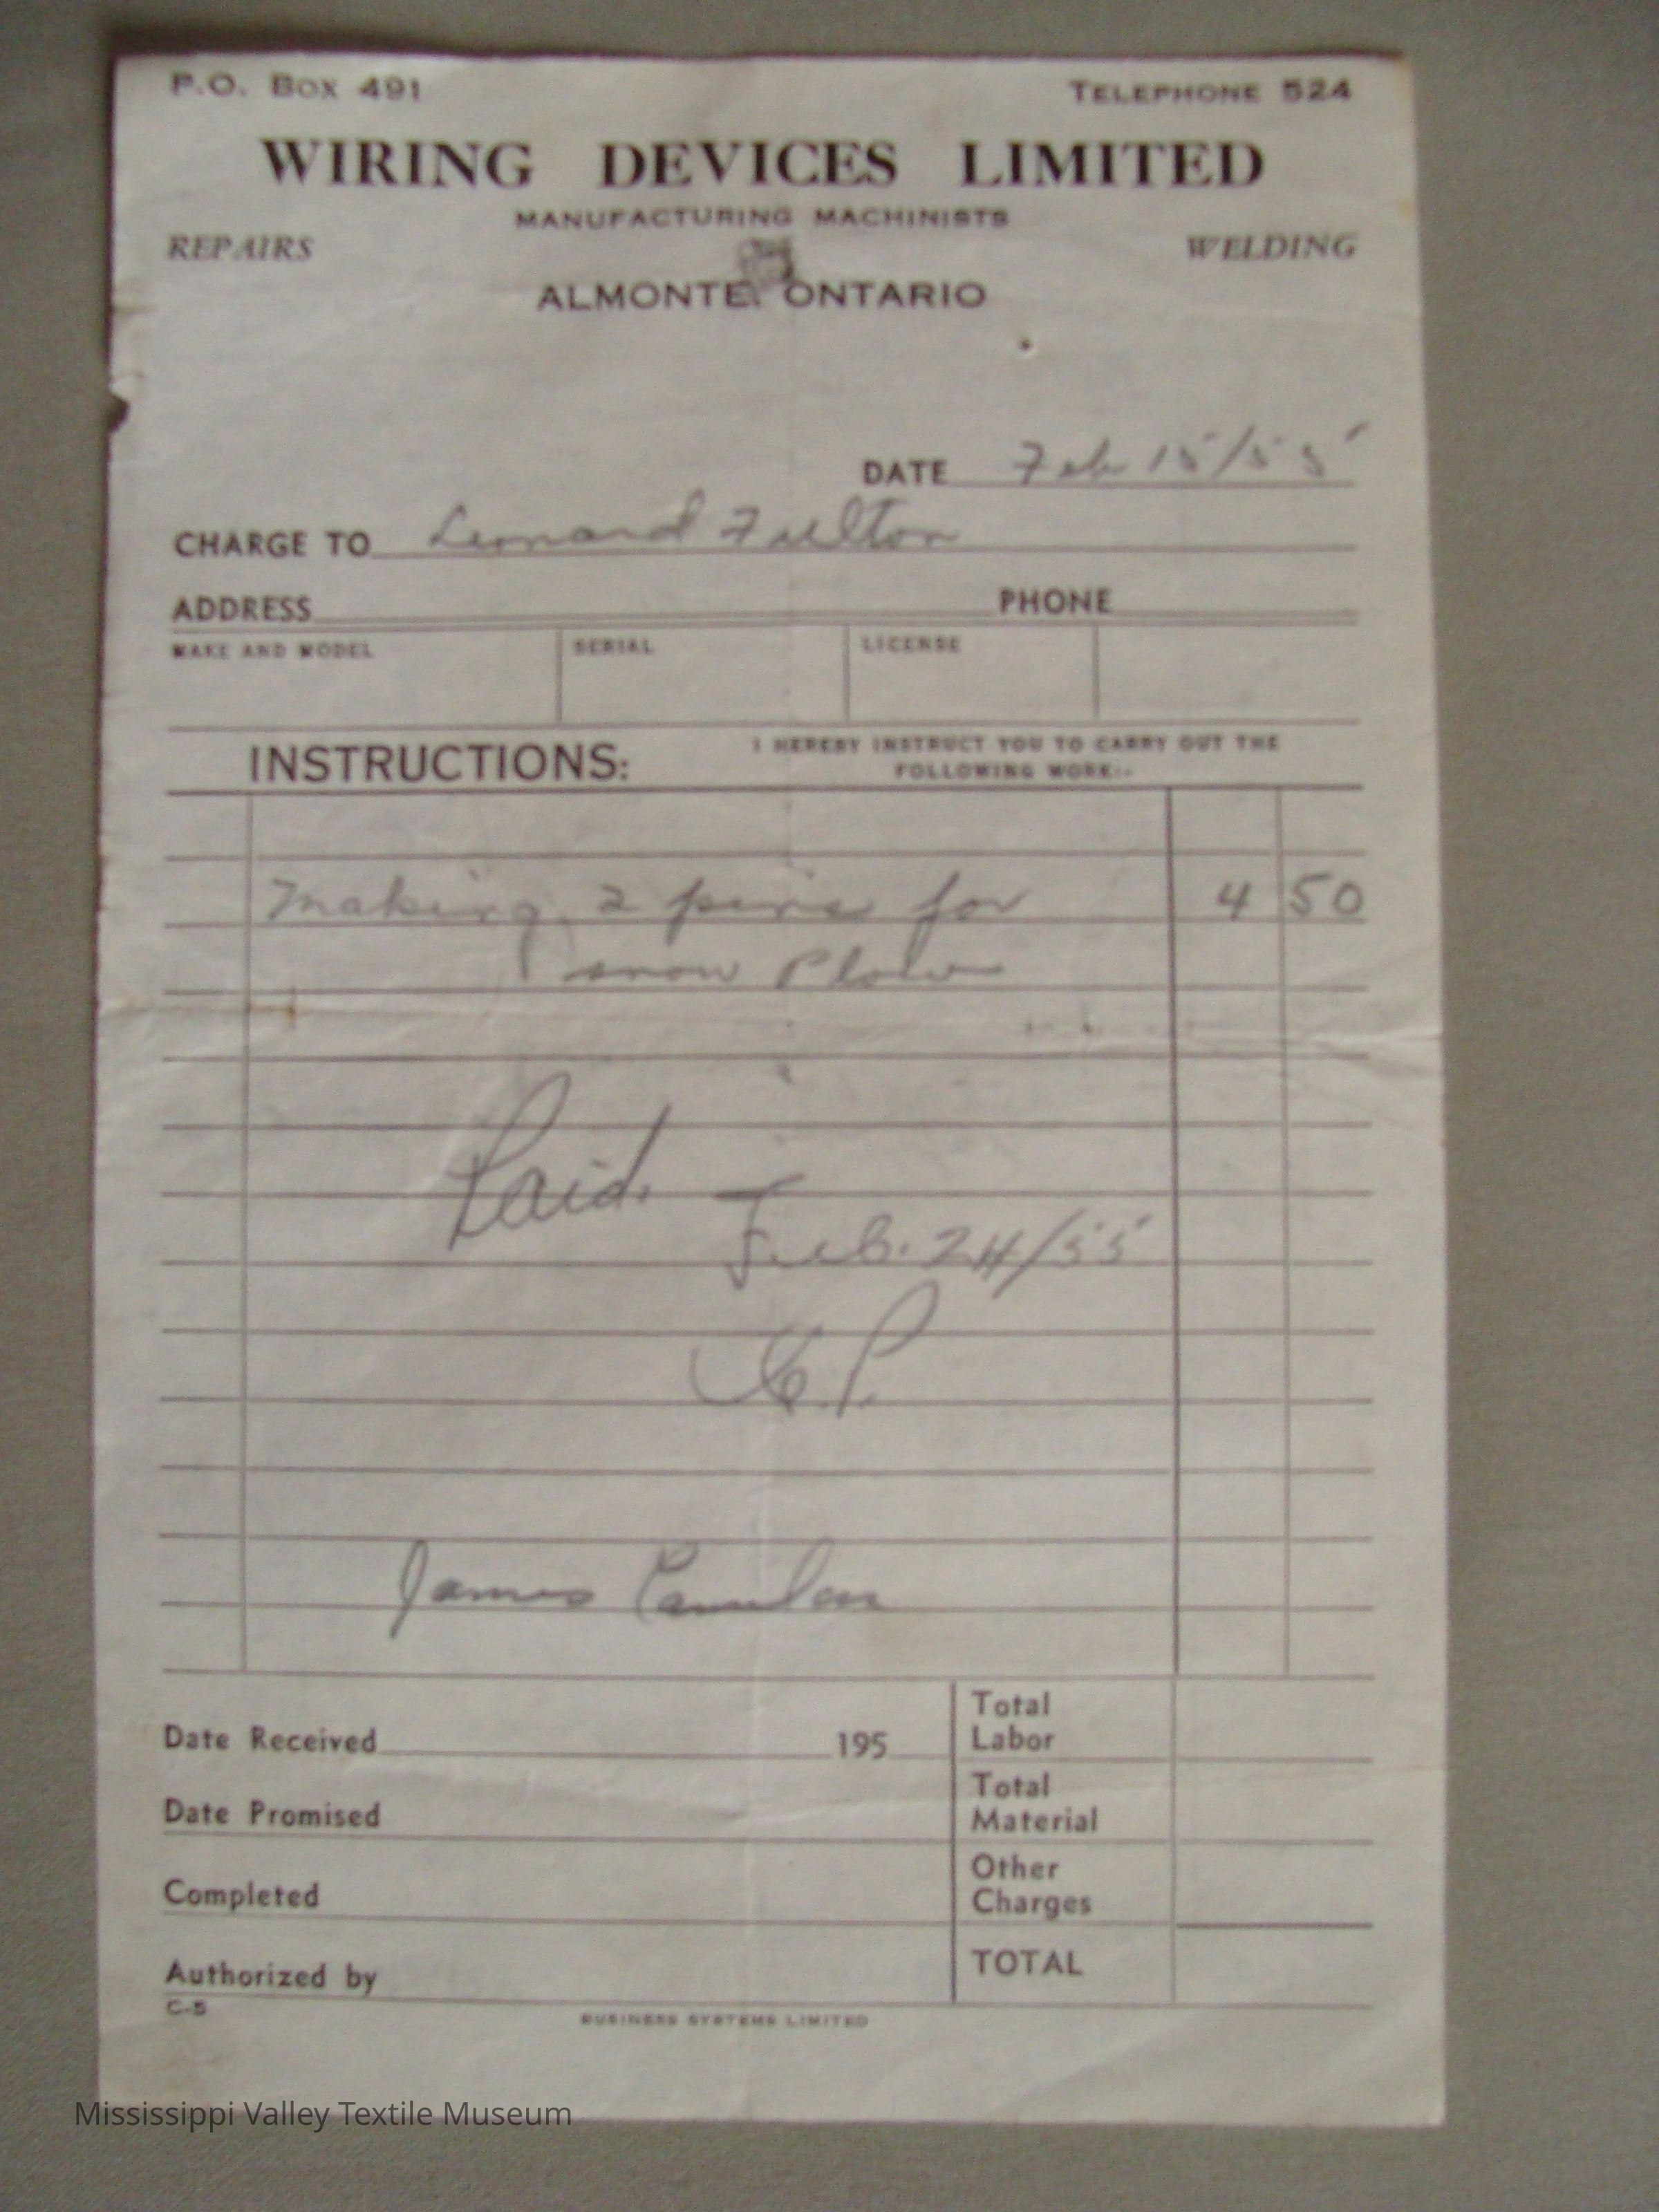 P.O. Box 491 TELEPHONE 524
WIRING DEVICES LIMITED
MANUFACTURING MACHINISTS
REPAIRS WELDING
ALMONTE, ONTARIO
DATE Feb 15/55
CHARGE TO Leonard Fulton
ADDRESS PHONE
MAKE AND MODEL SERIAL LICENSE
INSTRUCTIONS: I HEREBY INSTRUCT YOU TO CARRY OUT THE
FOLLOWING WORK:-
Making 2 pins for 4 50
snow Plow
Paid.
Feb. 24/55
James
Date Received 195 Total
Labor
Total
Date Promised Material
Other
Completed Charges
Authorized by TOTAL
C-5 BUSINESS SYSTEMS LIMITED
Mississippi Valley Textile Museum